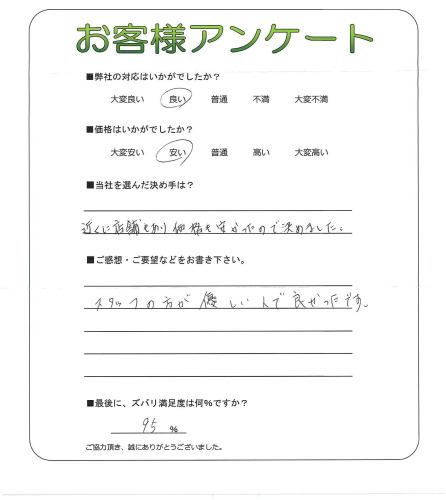 お客様アンケート
■弊社の対応はいかがでしたか？
大変良い 良い 普通 不満 大変不満
■価格はいかがでしたか？
大変安い 安い 普通 高い 大変高い
■当社を選んだ決め手は？
近くに店舗もあり価格も安かったので決めました。
■ご感想・ご要望などをお書き下さい。
スタッフの方が優しい人で良かったです。
■最後に、ズバリ満足度は何%ですか？
95 %
ご協力頂き、誠にありがとうございました。